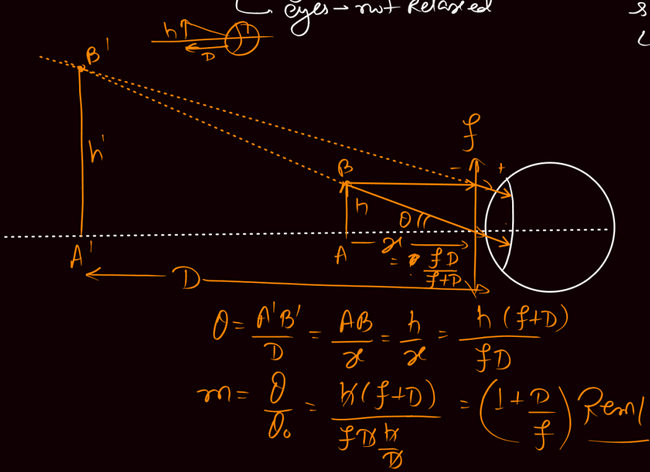 eyes → not Relaxed
h
D
B'
f
- +
h'
B
h
θ
A'
A
x
= fD/(f+D)
D
θ = A'B'/D = AB/x = h/x = h(f+D)/fD
m = θ/θ₀ = h(f+D)/(fD h/D) = (1+D/f) Rem